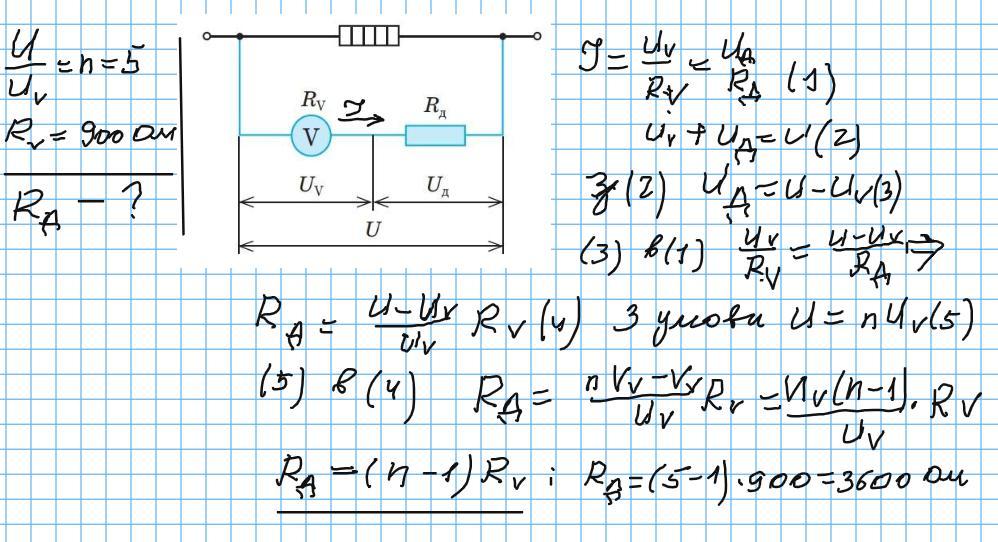 U/U_V = n = 5
R_V = 900 Ом
R_Д - ?
R_V I R_Д
V
U_V U_Д
U
I = U_V/R_V = U_Д/R_Д (1)
U_V + U_Д = U (2)
З (2) U_Д = U - U_V (3)
(3) в (1) U_V/R_V = U-U_V/R_Д ⇒
R_Д = U-U_V/U_V R_V (4) З умови U = nU_V (5)
(5) в (4) R_Д = nU_V-U_V/U_V R_V = U_V(n-1)/U_V · R_V
R_Д = (n-1) R_V ; R_Д = (5-1)·900 = 3600 Ом